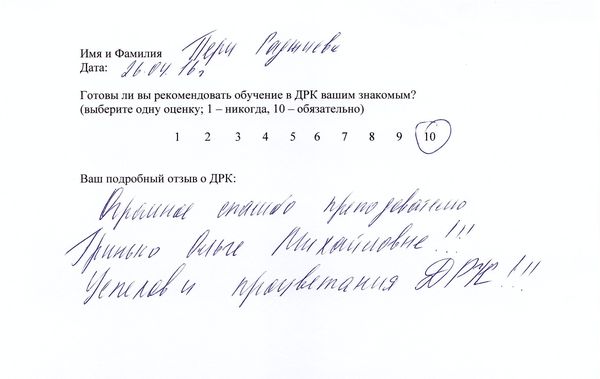 Имя и Фамилия Пери
Дата: 26.04.16г
Готовы ли вы рекомендовать обучение в ДРК вашим знакомым?
(выберите одну оценку; 1 – никогда, 10 – обязательно)
1 2 3 4 5 6 7 8 9 10
Ваш подробный отзыв о ДРК:
Огромное спасибо преподавателю
Гринько Ольге Михайловне!!!
Успехов и процветания ДРК!!!